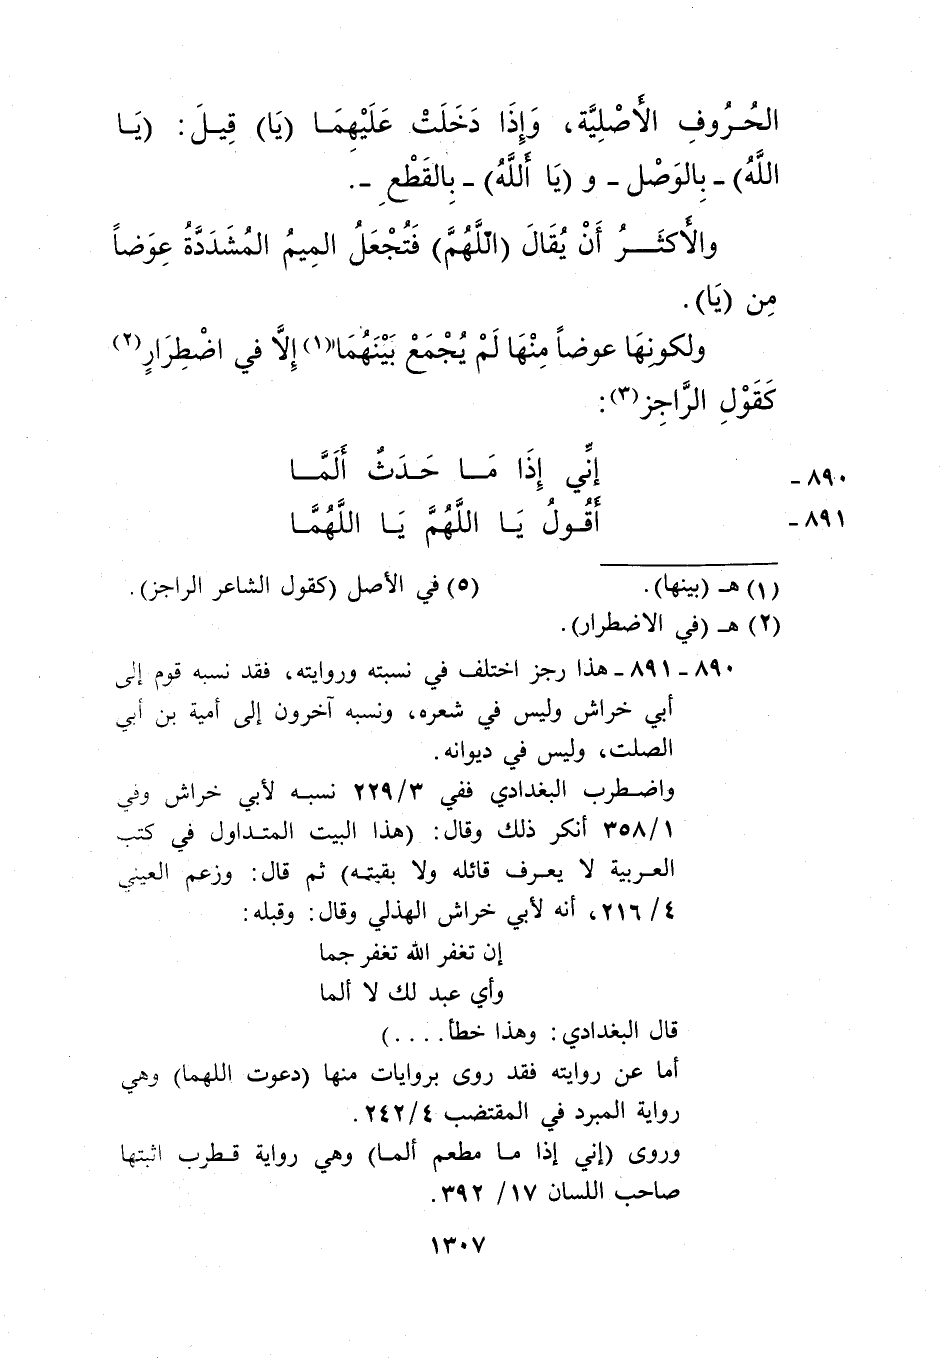 الحُرُوفِ الأَصْلِيَّة، وَإِذَا دَخَلَتْ عَلَيْهِمَا (يَا) قِيلَ: (يَا
اللَّهُ) - بِالوَصْل - و (يَا أَللَّهُ) - بِالقَطْعِ -.
والأَكثَرُ أَنْ يُقَالَ (اللَّهُمَّ) فَتُجْعَلُ المِيمُ المُشَدَدَّةُ عِوَضاً
مِن (يَا).
ولكونِهَا عوضاً مِنْهَا لَمْ يُجْمَعْ بَيْنَهُمَا(١) إِلَّا في اضْطِرَارٍ(٢)
كَقَوْلِ الرَّاجِز(٣):
٨٩٠ - إنِّي إِذَا مَا حَدَثٌ أَلَمَّا
٨٩١ - أَقُولُ يَا اللَّهُمَّ يَا اللَّهُمَّا
(١) هـ (بينها). (٥) في الأصل (كقول الشاعر الراجز).
(٢) هـ (في الاضطرار).
٨٩٠ - ٨٩١ - هذا رجز اختلف في نسبته وروايته، فقد نسبه قوم إلى
أبي خراش وليس في شعره، ونسبه آخرون إلى أمية بن أبي
الصلت، وليس في ديوانه.
واضطرب البغدادي ففي ٢٢٩/٣ نسبه لأبي خراش وفي
٣٥٨/١ أنكر ذلك وقال: (هذا البيت المتداول في كتب
العربية لا يعرف قائله ولا بقيته) ثم قال: وزعم العيني
٢١٦/٤، أنه لأبي خراش الهذلي وقال: وقبله:
إن تغفر الله تغفر جما
وأي عبد لك لا ألما
قال البغدادي: وهذا خطأ....)
أما عن روايته فقد روى بروايات منها (دعوت اللهما) وهي
رواية المبرد في المقتضب ٢٤٢/٤.
وروى (إني إذا ما مطعم ألما) وهي رواية قطرب اثبتها
صاحب اللسان ١٧/ ٣٩٢.
١٣٠٧